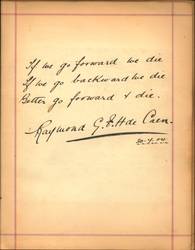 If we go forward we die
If we go backward we die
Better go forward & die.
Raymond G. de Caen.